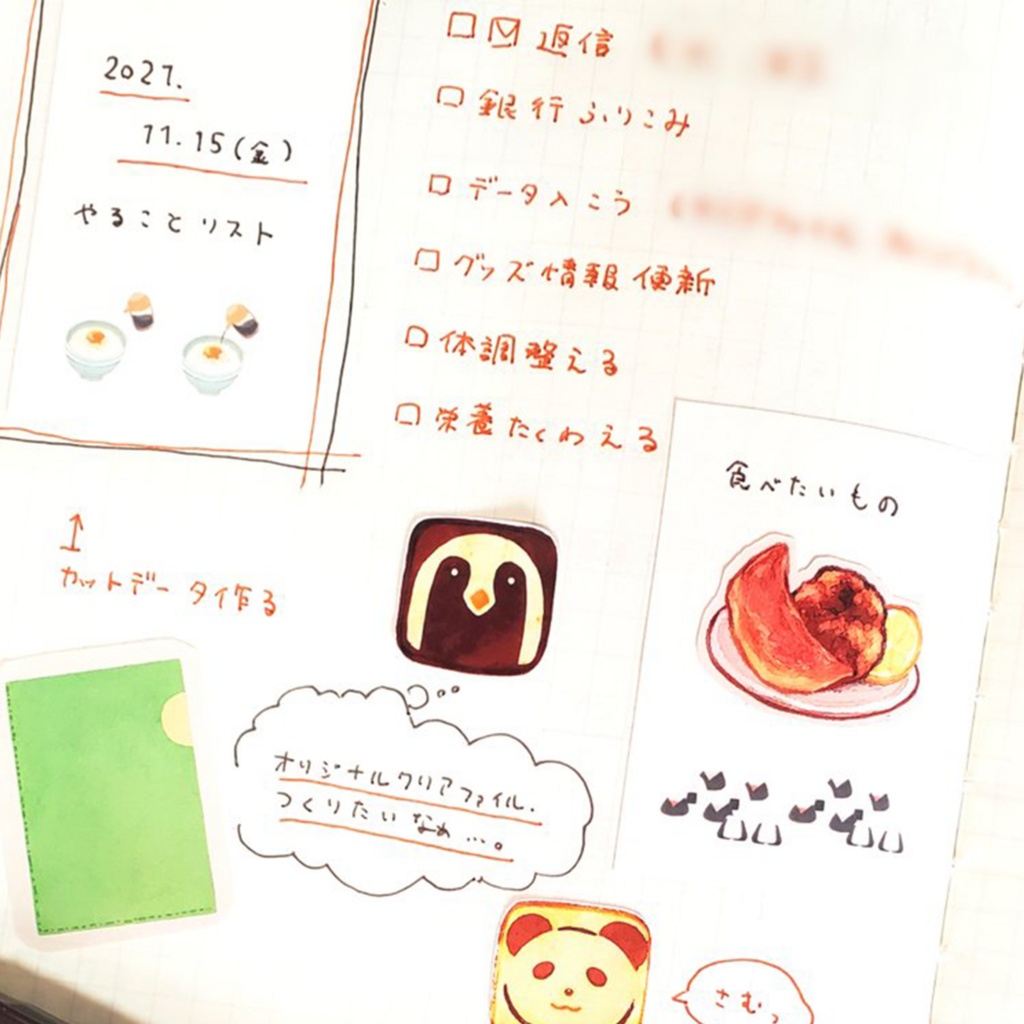 2021.
11.15(金)
やることリスト
□ 返信
□ 銀行ふりこみ
□ データ入こう
□ グッズ情報更新
□ 体調整える
□ 栄養たくわえる
食べたいもの
↑
カットデータ作る
オリジナルクリアファイル.
つくりたいなぁ…。
さむっ